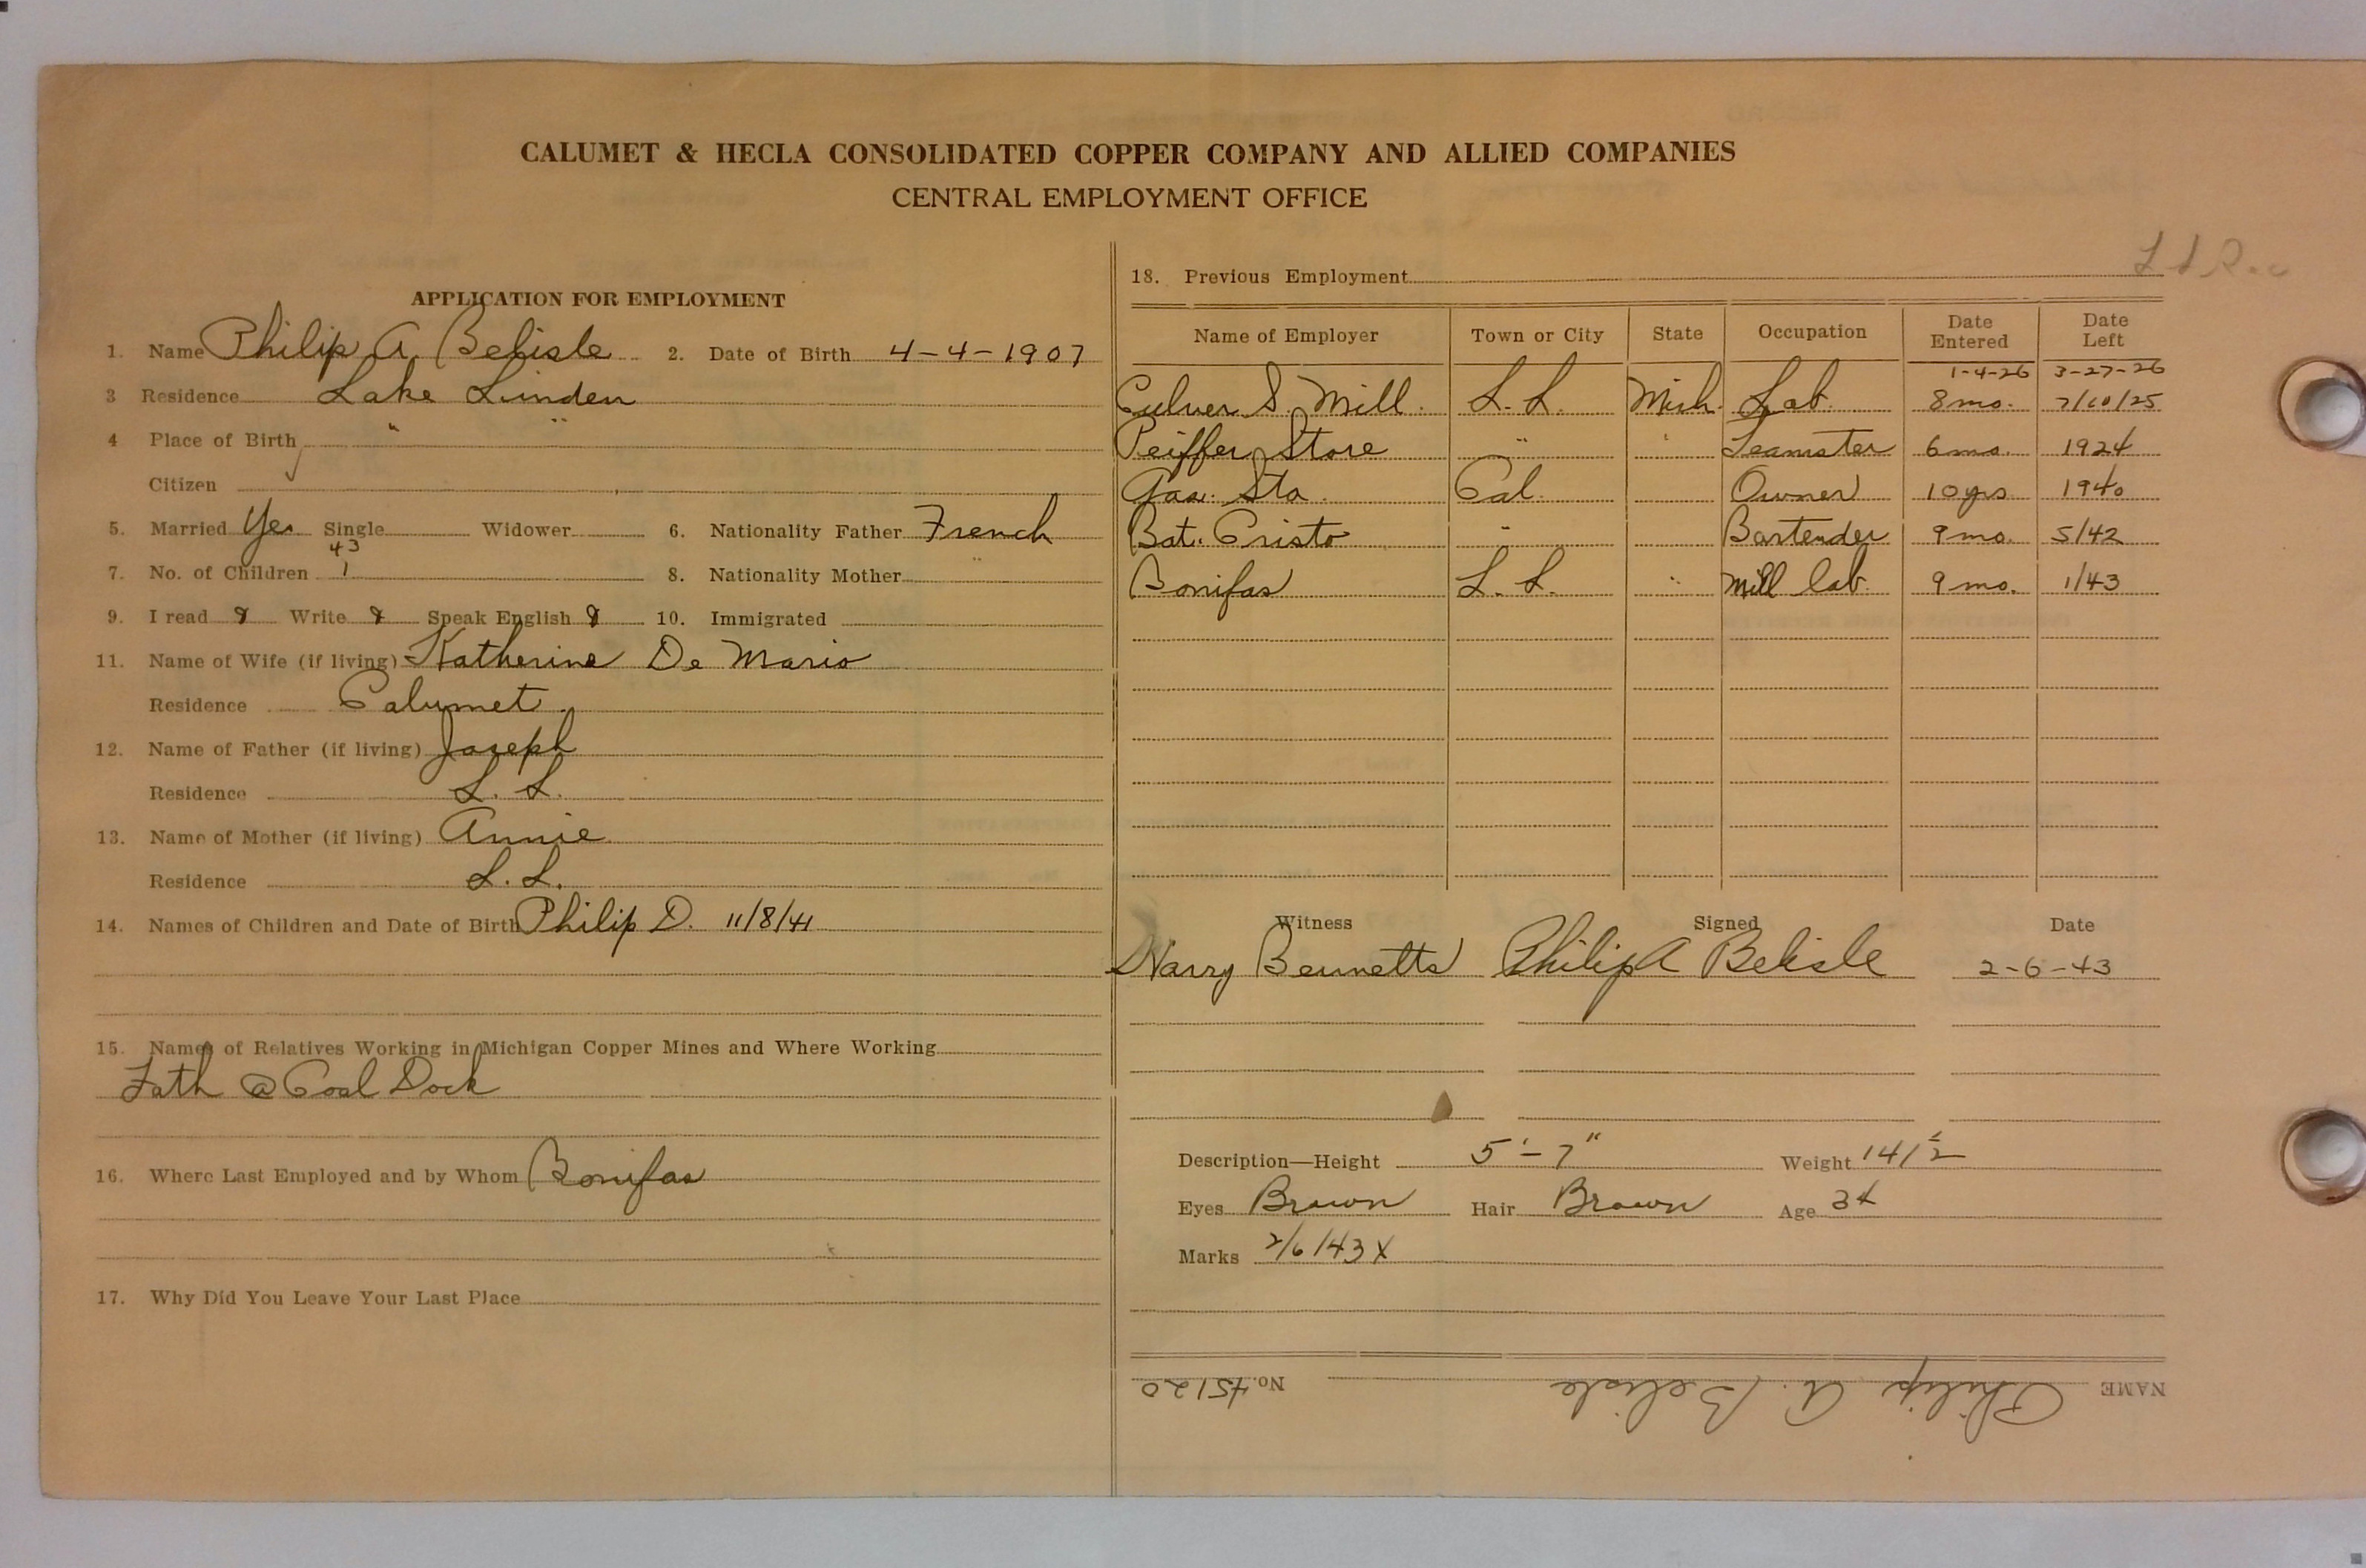 CALUMET & HECLA CONSOLIDATED COPPER COMPANY AND ALLIED COMPANIES
CENTRAL EMPLOYMENT OFFICE
APPLICATION FOR EMPLOYMENT
1. Name Philip A Belisle 2. Date of Birth 4-4-1907
3 Residence Lake Linden
4 Place of Birth " "
Citizen ✓
5. Married Yes Single Widower 6. Nationality Father French
43
7. No. of Children 1 8. Nationality Mother "
9. I read Write Speak English 10. Immigrated
11. Name of Wife (if living) Katherine De Mario
Residence Calumet
12. Name of Father (if living) Joseph
Residence L. L.
13. Name of Mother (if living) Annie
Residence L. L.
14. Names of Children and Date of Birth Philip D. 11/8/41
15. Names of Relatives Working in Michigan Copper Mines and Where Working
Fath @ Coal Dock
16. Where Last Employed and by Whom Bonifas
17. Why Did You Leave Your Last Place
18. Previous Employment
Name of Employer Town or City State Occupation Date Entered Date Left
1-4-26 3-27-26
Culver S. Mill. L. L. Mich. Lab. 8 mo. 7/10/25
Peiffer Store " " Teamster 6 mo. 1924
Gas. Sta. Cal. Owner 10 yrs 1940
Bat. Cristo " Bartender 9 mo. 5/42
Bonifas L. L. " Mill lab. 9 mo. 1/43
Witness Signed Date
Harry Bennetts Philip A Belisle 2-6-43
Description—Height 5'-7" Weight 141½
Eyes Brown Hair Brown Age 34
Marks 2/6/43 X
NAME Philip A. Belisle No. 45120